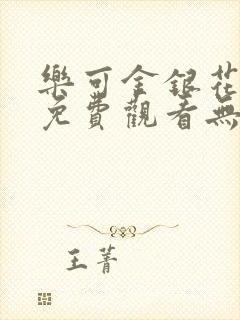 樂可金銀花
免費觀看無
王菁